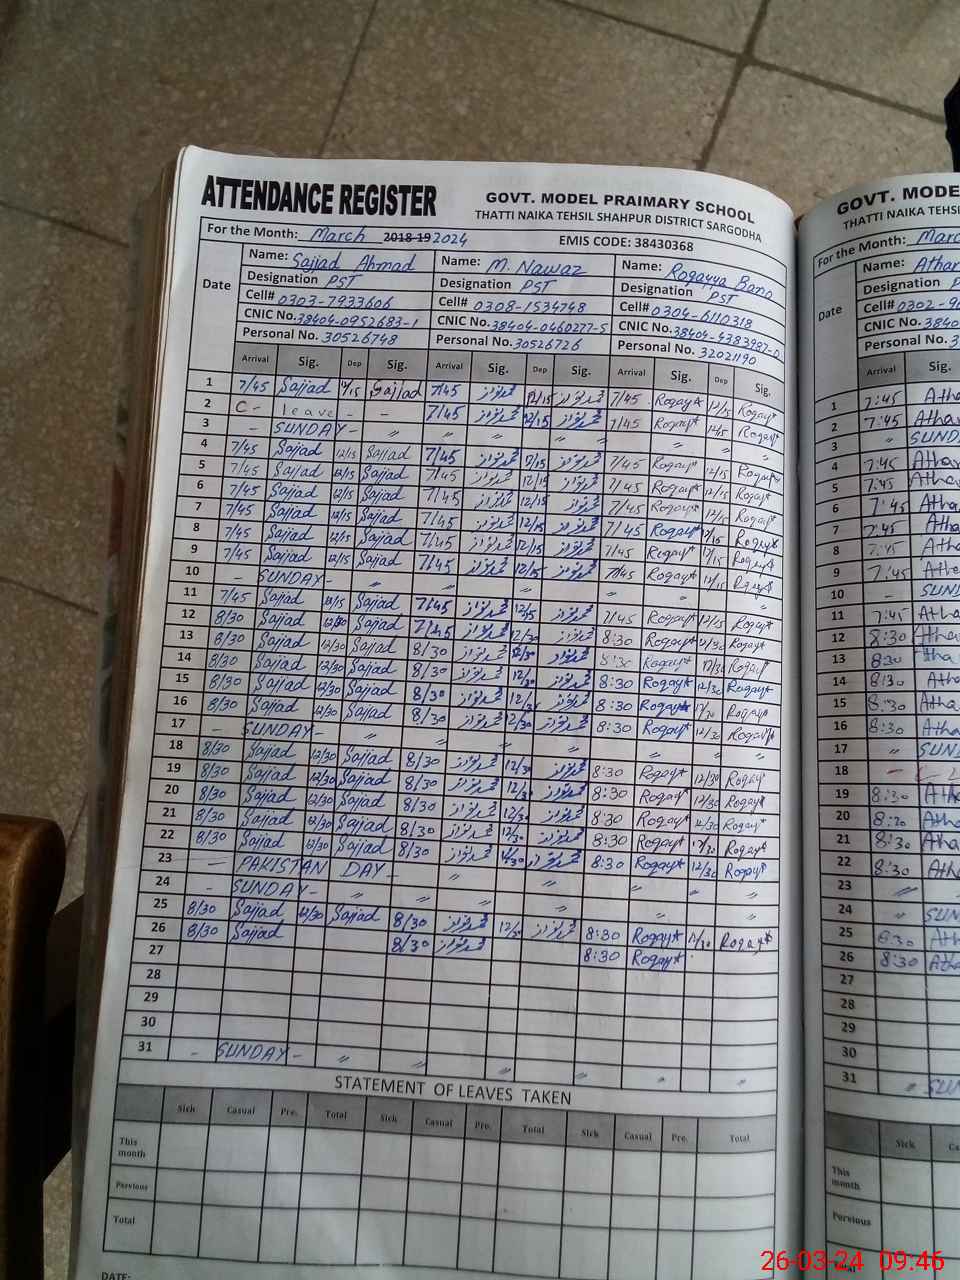 ATTENDANCE REGISTER
GOVT. MODEL PRAIMARY SCHOOL
THATTI NAIKA TEHSIL SHAHPUR DISTRICT SARGODHA
For the Month: March 2018-19 2024 EMIS CODE: 38430368
Date
Name: Sajjad Ahmad Name: M. Nawaz Name: Rogayya Bano
Designation PST Designation PST Designation PST
Cell# 0303-7933606 Cell# 0308-1534748 Cell# 0304-6110318
CNIC No. 38404-0952683-1 CNIC No. 38404-0460277-5 CNIC No. 38404-4383987-0
Personal No. 30526748 Personal No. 30526726 Personal No. 32021190
Arrival Sig. Dep Sig. Arrival Sig. Dep Sig. Arrival Sig. Dep Sig.
1 7/45 Sajjad 12/15 Sajjad 7/45 محمد نواز 12/15 محمد نواز 7/45 Rogayya 12/15 Rogayya
2 C- leave - - 7/45 محمد نواز 12/15 محمد نواز 7/45 Rogayya 12/15 Rogayya
3 - SUNDAY - " " " " " "
4 7/45 Sajjad 12/15 Sajjad 7/45 محمد نواز 12/15 محمد نواز 7/45 Rogayya 12/15 Rogayya
5 7/45 Sajjad 12/15 Sajjad 7/45 محمد نواز 12/15 محمد نواز 7/45 Rogayya 12/15 Rogayya
6 7/45 Sajjad 12/15 Sajjad 7/45 محمد نواز 12/15 محمد نواز 7/45 Rogayya 12/15 Rogayya
7 7/45 Sajjad 12/15 Sajjad 7/45 محمد نواز 12/15 محمد نواز 7/45 Rogayya 12/15 Rogayya
8 7/45 Sajjad 12/15 Sajjad 7/45 محمد نواز 12/15 محمد نواز 7/45 Rogayya 12/15 Rogayya
9 7/45 Sajjad 12/15 Sajjad 7/45 محمد نواز 12/15 محمد نواز 7/45 Rogayya 12/15 Rogayya
10 - SUNDAY - " " " " "
11 7/45 Sajjad 12/15 Sajjad 7/45 محمد نواز 12/15 محمد نواز 7/45 Rogayya 12/15 Rogayya
12 8/30 Sajjad 12/30 Sajjad 7/45 محمد نواز 12/30 محمد نواز 8:30 Rogayya 12/30 Rogayya
13 8/30 Sajjad 12/30 Sajjad 8/30 محمد نواز 12/30 محمد نواز 8:30 Rogayya 12/30 Rogayya
14 8/30 Sajjad 12/30 Sajjad 8/30 محمد نواز 12/30 محمد نواز 8:30 Rogayya 12/30 Rogayya
15 8/30 Sajjad 12/30 Sajjad 8/30 محمد نواز 12/30 محمد نواز 8:30 Rogayya 12/30 Rogayya
16 8/30 Sajjad 12/30 Sajjad 8/30 محمد نواز 12/30 محمد نواز 8:30 Rogayya 12/30 Rogayya
17 - SUNDAY - " " " " "
18 8/30 Sajjad 12/30 Sajjad 8/30 محمد نواز 12/30 محمد نواز 8:30 Rogayya 12/30 Rogayya
19 8/30 Sajjad 12/30 Sajjad 8/30 محمد نواز 12/30 محمد نواز 8:30 Rogayya 12/30 Rogayya
20 8/30 Sajjad 12/30 Sajjad 8/30 محمد نواز 12/30 محمد نواز 8:30 Rogayya 12/30 Rogayya
21 8/30 Sajjad 12/30 Sajjad 8/30 محمد نواز 12/30 محمد نواز 8:30 Rogayya 12/30 Rogayya
22 8/30 Sajjad 12/30 Sajjad 8/30 محمد نواز 12/30 محمد نواز 8:30 Rogayya 12/30 Rogayya
23 - PAKISTAN DAY - " " " " "
24 - SUNDAY - " " " " "
25 8/30 Sajjad 12/30 Sajjad 8/30 محمد نواز 12/30 محمد نواز 8:30 Rogayya 12/30 Rogayya
26 8/30 Sajjad 8/30 محمد نواز 8:30 Rogayya
27
28
29
30
31 - SUNDAY - " " " " "
STATEMENT OF LEAVES TAKEN
Sick Casual Pre. Total Sick Casual Pre. Total Sick Casual Pre. Total
This month
Pervious
Total
DATE:
GOVT. MODE
THATTI NAIKA TEHSI
For the Month: Marc
Date
Name: Athar
Designation P
Cell# 0302-9
CNIC No. 3840
Personal No. 3
Arrival Sig.
1 7:45 Atha
2 7:45 Atha
3 " SUND
4 7:45 Atha
5 7:45 Atha
6 7:45 Atha
7 7:45 Atha
8 7:45 Atha
9 7:45 Atha
10 - SUN
11 7:45 Atha
12 8:30 Atha
13 8:30 Atha
14 8:30 Atha
15 8:30 Atha
16 8:30 Atha
17 " SUN
18 - C L
19 8:30 Atha
20 8:30 Atha
21 8:30 Atha
22 8:30 Atha
23 "
24 " SUN
25 8:30 Ath
26 8:30 Atha
27
28
29
30
31 " SUN
Sick
This month
Pervious
26-03-24 09:46